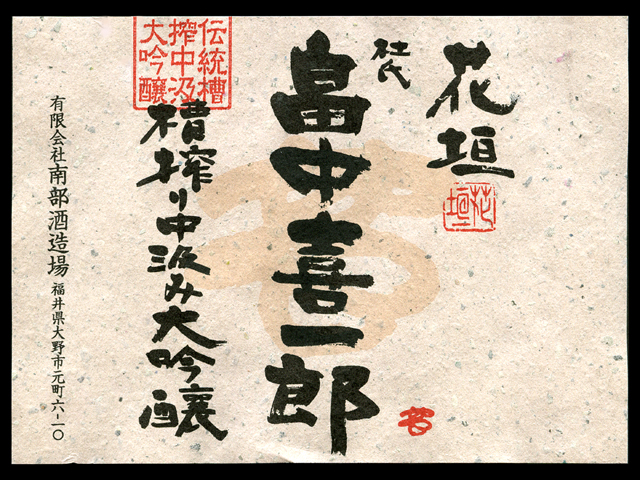 花垣
花垣
杜氏
畠中喜一郎
伝統槽
搾中汲
大吟醸
槽搾り中汲み大吟醸
有限会社南部酒造場
福井県大野市元町六-一〇